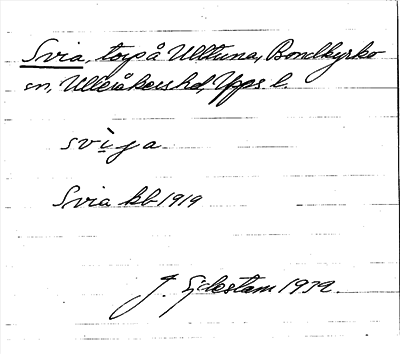 Svia, torp å Ulltuna, Bondkyrko
sn, Ulleråkers hd, Upps. l.
svija
Svia kb 1919
J. Ejdestam 1932.